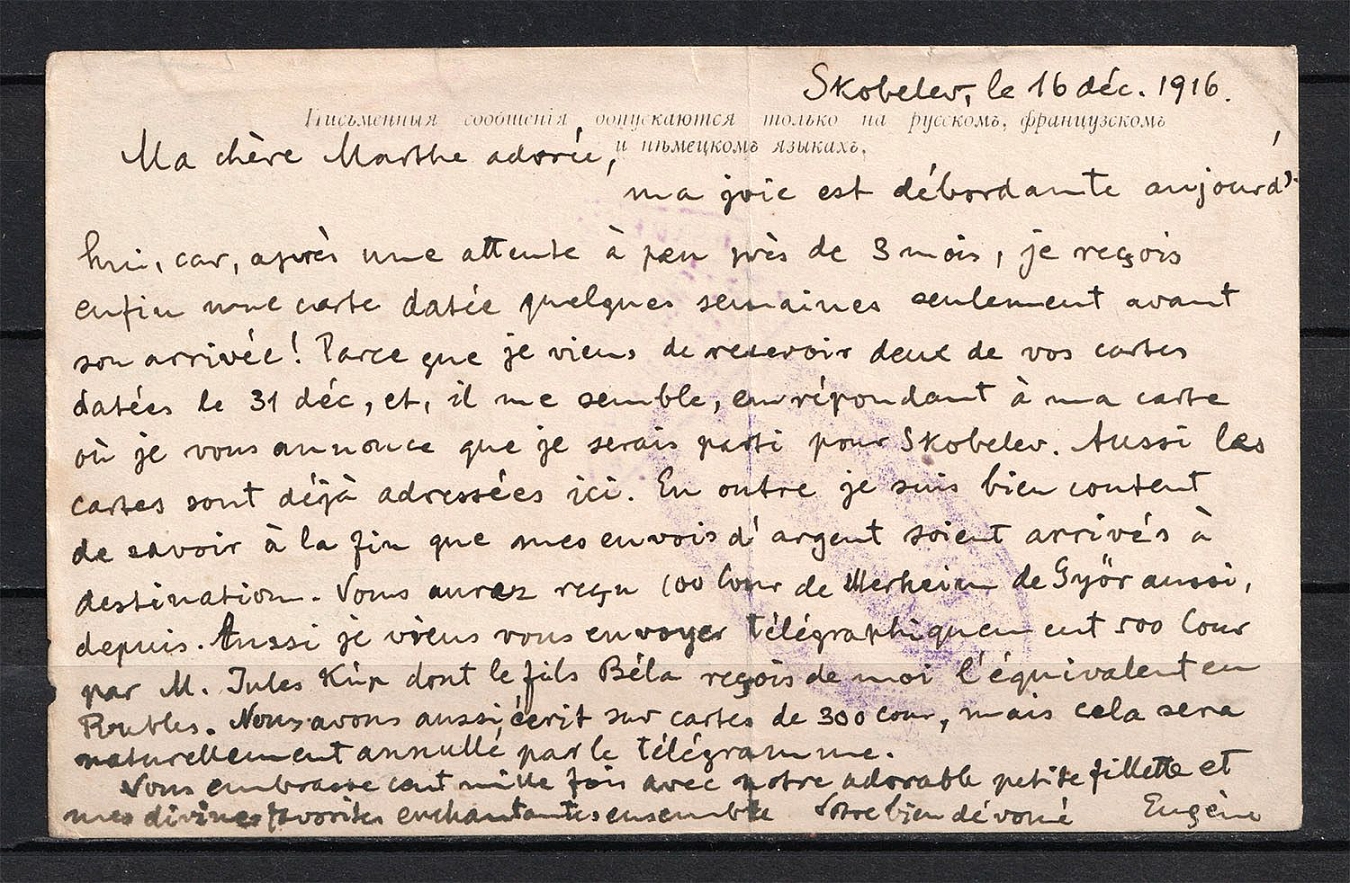 Skobelev, le 16 déc. 1916.
Письменныя сообщенія допускаются только на русскомъ, французскомъ
и нѣмецкомъ языкахъ.
Ma chère Marthe adorée,
ma joie est débordante aujourd'
hui, car, après une attente à peu près de 3 mois, je reçois
enfin une carte datée quelques semaines seulement avant
son arrivée! Parce que je viens de recevoir deux de vos cartes
datées le 31 déc, et, il me semble, en répondant à ma carte
où je vous annonce que je serais parti pour Skobelev. Aussi les
cartes sont déjà adressées ici. En outre je suis bien content
de savoir à la fin que mes envois d'argent soient arrivés à
destination. Vous aurez reçu 100 Cour de Merheim de Györ aussi,
depuis. Aussi je viens vous envoyer télégraphiquement 500 Cour
par M. Jules Kúp dont le fils Béla reçois de moi l'équivalent en
Roubles. Nous avons aussi écrit sur cartes de 300 cour, mais cela sera
naturellement annullé par le télégramme.
Vous embrasse cent mille fois avec notre adorable petite fillette et
mes divines favorites enchantantes ensemble Votre bien dévoué Eugène